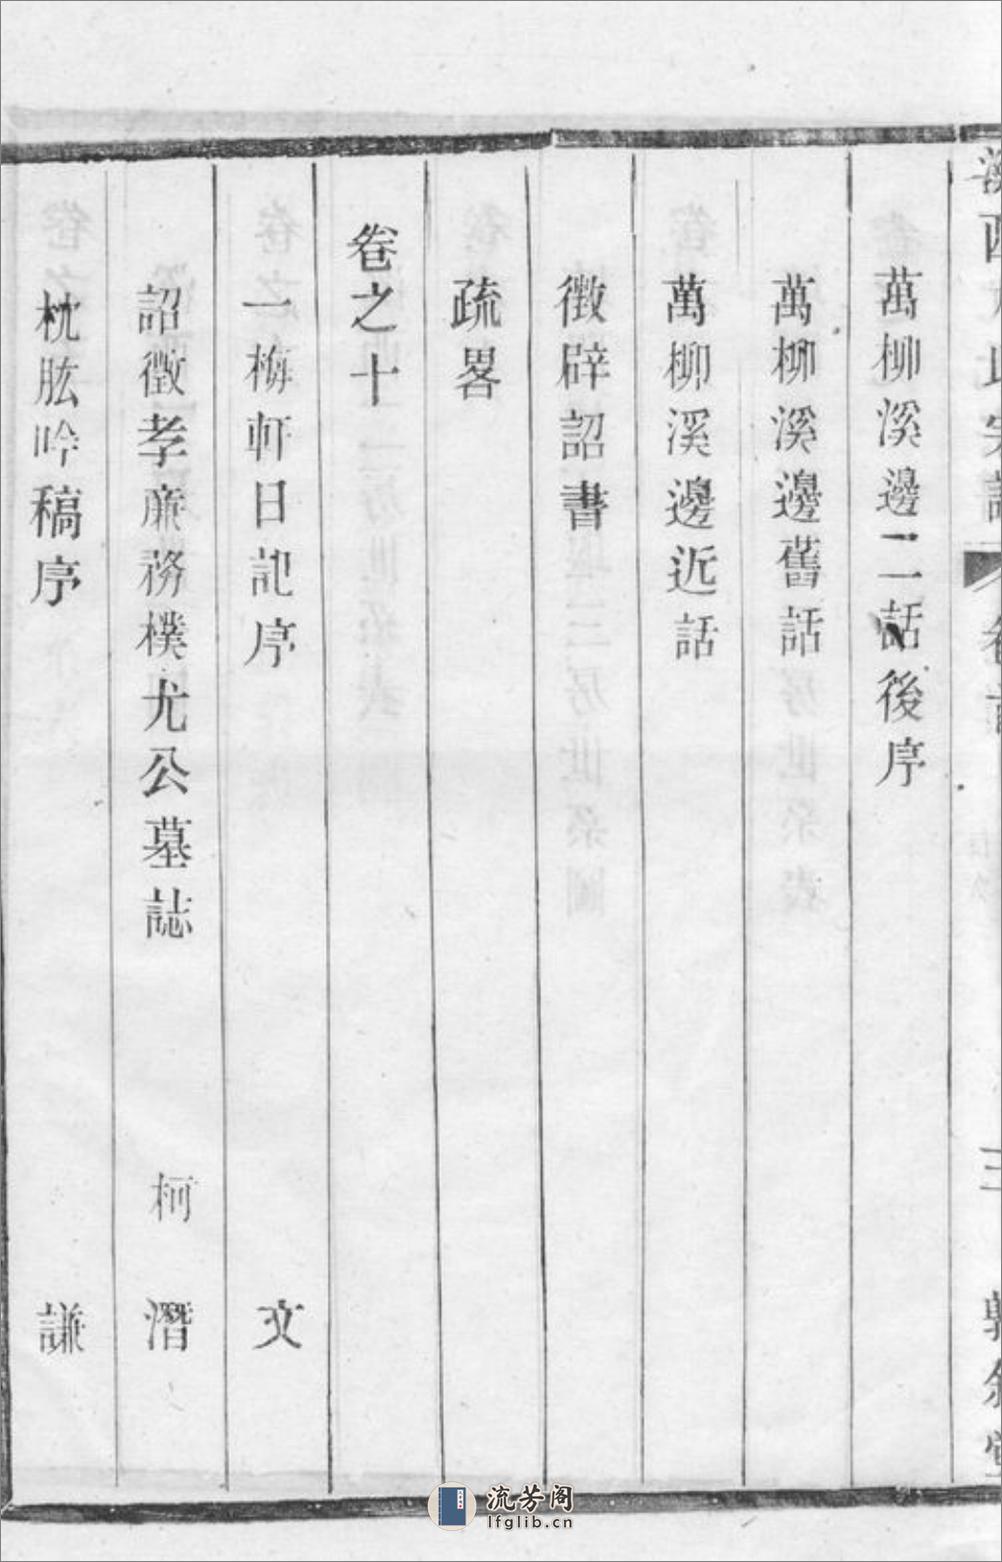 萬柳溪邊二話後序
萬柳溪邊舊話
萬柳溪邊近話
徵辟詔書
疏畧
卷之十
一梅軒日記序 文
詔徵孝廉務樸尤公墓誌 柯潛
枕肱吟稿序 謙
流芳阁
lfglib.cn